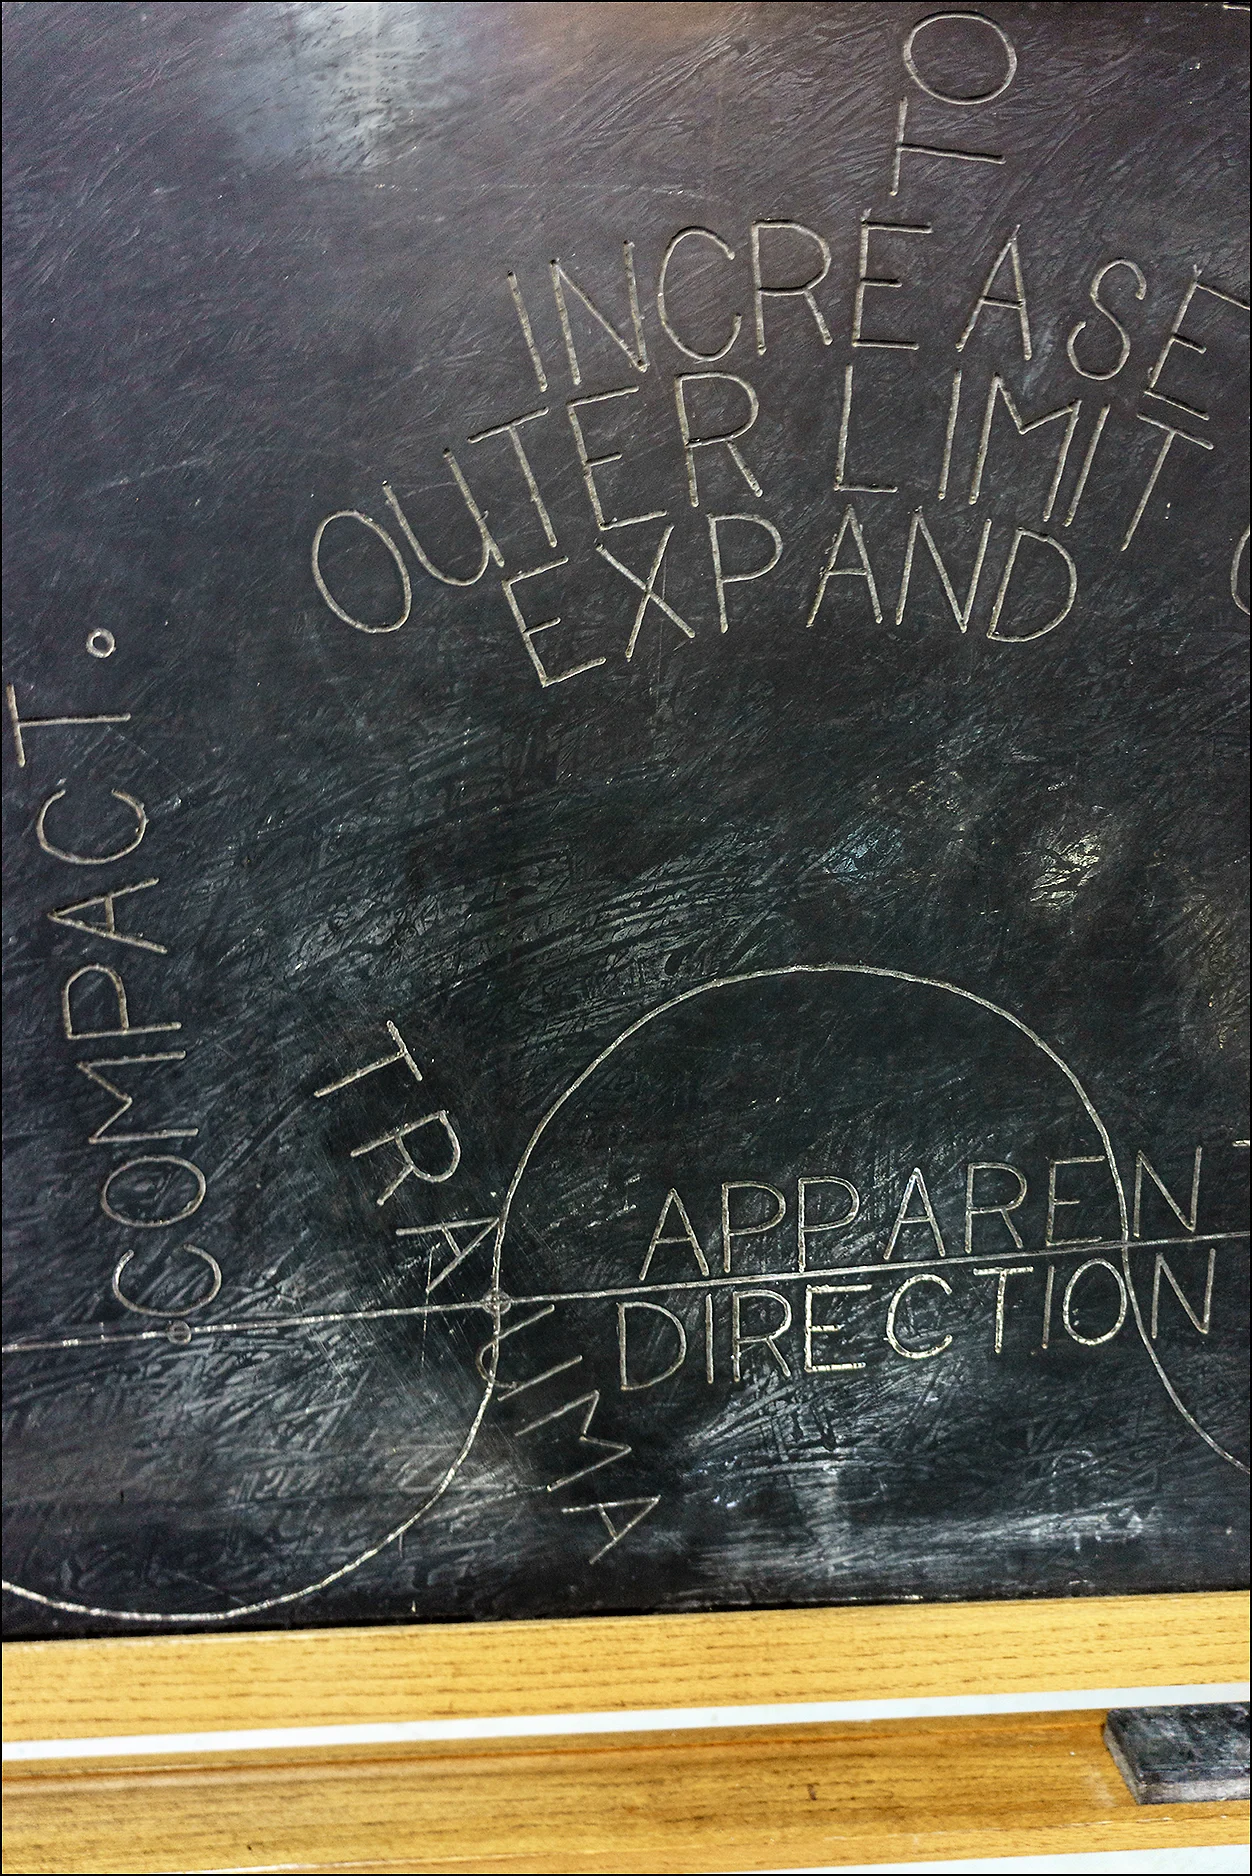 TO
INCREASE
OUTER LIMIT
EXPAND
COMPACT.
TRAUMA
APPARENT
DIRECTION